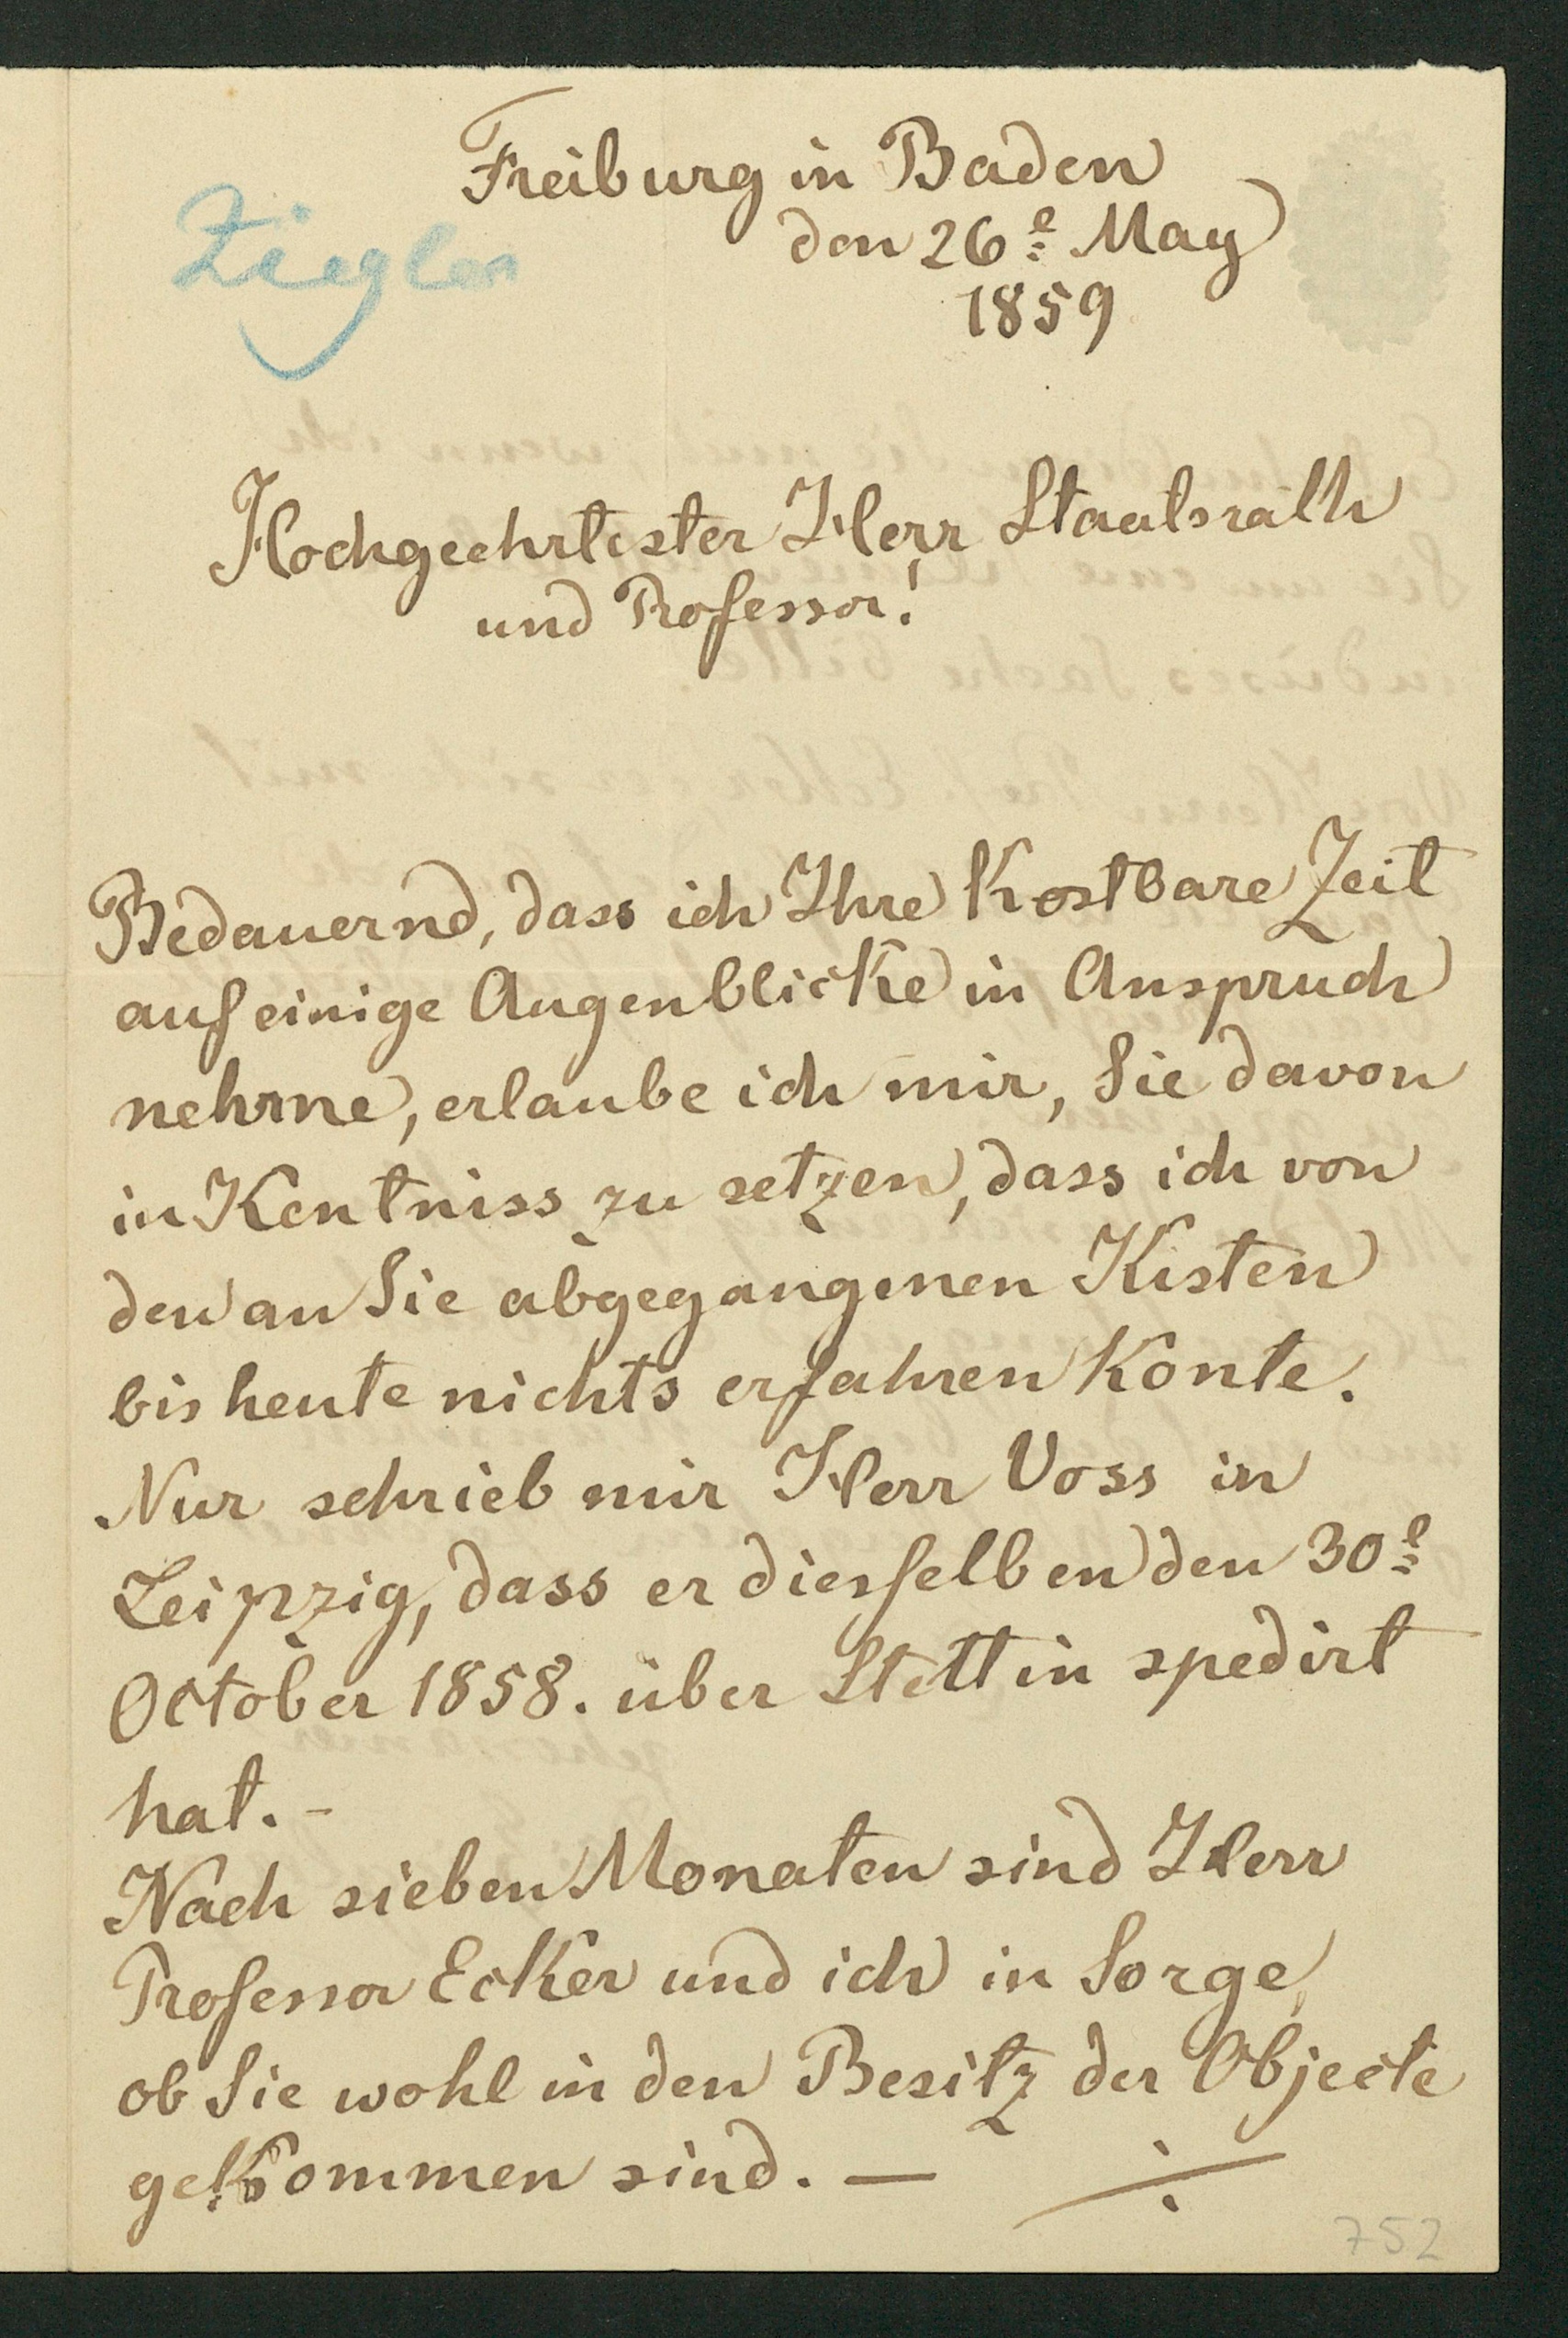 Freiburg in Baden
den 26e May
1859
Ziegler
Hochgeehrtester Herr Staatsrath
und Professor!
Bedauernd, dass ich Ihre Kostbare Zeit
auf einige Augenblicke in Anspruch
nehme, erlaube ich mir, Sie davon
in Kentniss zu setzen, dass ich von
den an Sie abgegangenen Kisten
bis heute nichts erfahren Konte.
Nur schrieb mir Herr Voss in
Leipzig, dass er diesselben den 30e
October 1858. über Stettin spedirt
hat. -
Nach sieben Monaten sind Herr
Professor Ecker und ich in Sorge,
ob Sie wohl in den Besitz der Objecte
gekommen sind. — ÷
752